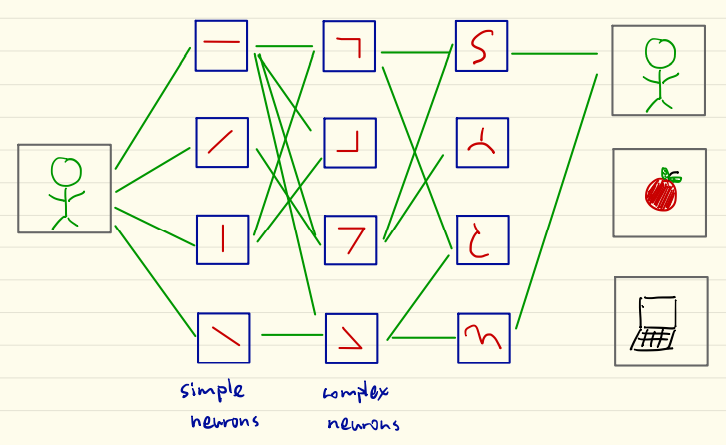 simple
neurons
complex
neurons